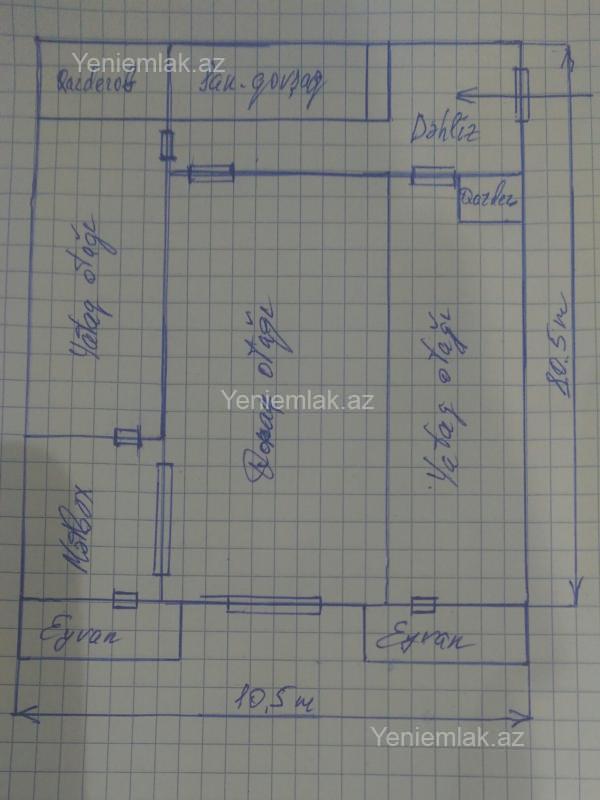 Yeniemlak.az
Yeniemlak.az
Qarderob
San-qovşaq
Dəhliz
Qarder
Yataq otağı
Qonaq otağı
Yataq otağı
Yeniemlak.az
Mətbəx
Eyvan
Eyvan
10,5 m
Yeniemlak.az